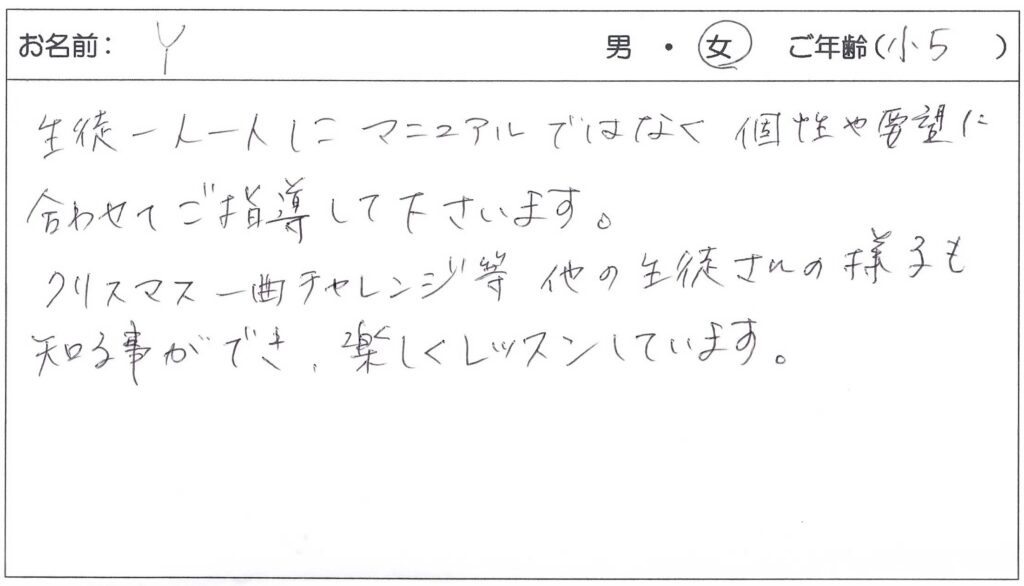 お名前： Y 男 ・ 女 ご年齢（小5 ）
生徒一人一人にマニュアルではなく 個性や要望に
合わせてご指導して下さいます。
クリスマス一曲チャレンジ等 他の生徒さんの様子も
知る事ができ、楽しくレッスンしています。